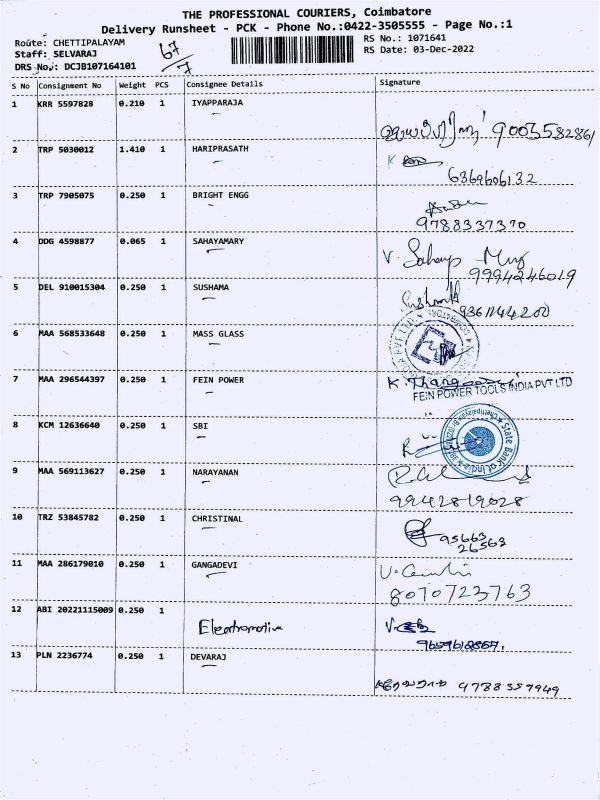 THE PROFESSIONAL COURIERS, Coimbatore
Delivery Runsheet - PCK - Phone No.:0422-3505555 - Page No.:1
Route: CHETTIPALAYAM
RS No.: 1071641
Staff: SELVARAJ
RS Date: 03-Dec-2022
DRS No.: DCJB107164101
67/7
S No Consignment No Weight PCS Consignee Details Signature
1 KRR 5597828 0.210 1 IYAPPARAJA
9003582861
2 TRP 5030012 1.410 1 HARIPRASATH
6369606132
3 TRP 7905075 0.250 1 BRIGHT ENGG
9788337370
4 DDG 4598877 0.065 1 SAHAYAMARY
V. Sahaya Mary
9994246019
5 DEL 910015304 0.250 1 SUSHAMA
9361144200
6 MAA 568533648 0.250 1 MASS GLASS
7 MAA 296544397 0.250 1 FEIN POWER
FEIN POWER TOOLS INDIA PVT LTD
8 KCM 12636640 0.250 1 SBI
State Bank of India
9 MAA 569113627 0.250 1 NARAYANAN
9942819028
10 TRZ 53845782 0.250 1 CHRISTINAL
95663
26563
11 MAA 286179010 0.250 1 GANGADEVI
8070723763
12 ABI 20221115009 0.250 1
Electromotive
13 PLN 2236774 0.250 1 DEVARAJ
9788357949